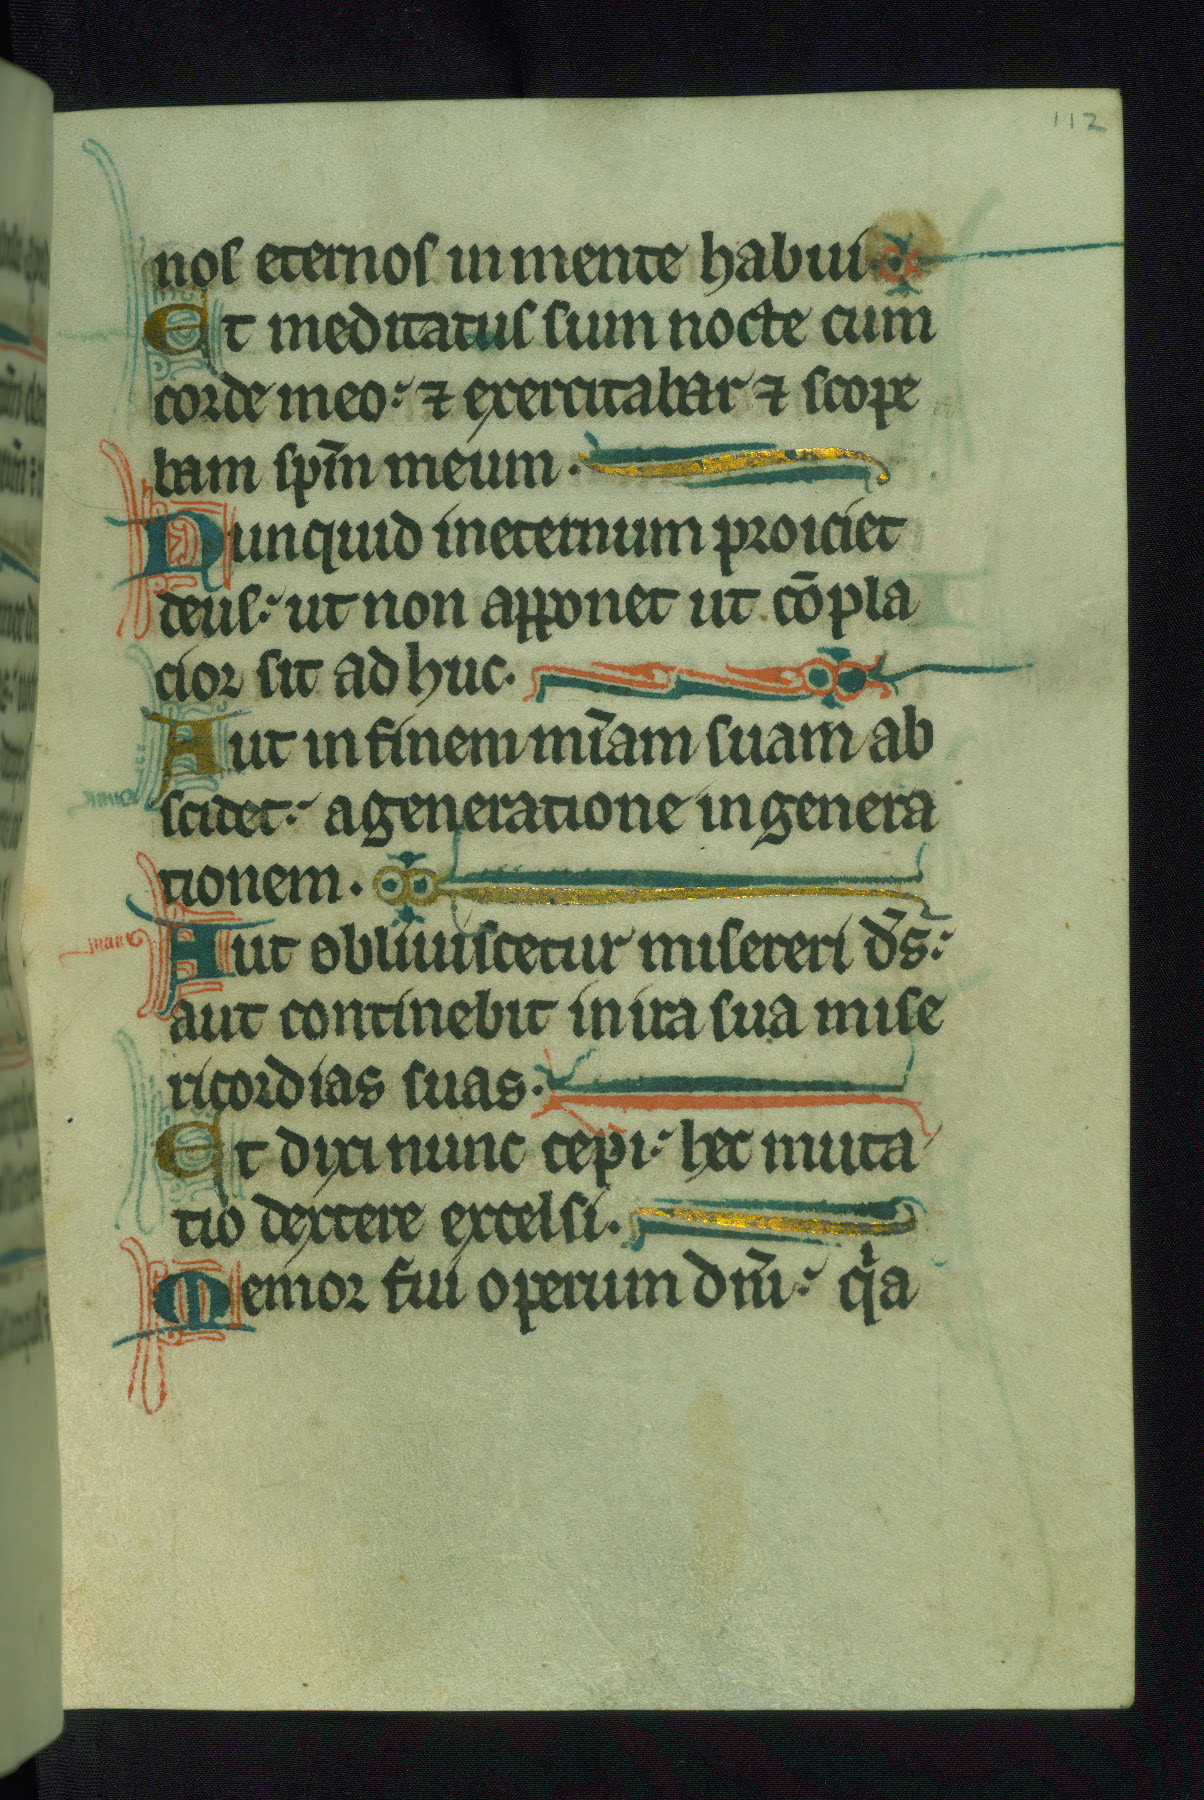 112
nos eternos in mente habui
Et meditatus sum nocte cum
corde meo: ⁊ exercitabar ⁊ scope
bam sp̄m meum.
Nunquid in eternum proiciet
deus: ut non apponet ut cōpla
cior sit ad huc.
Aut in finem mīam suam ab
scidet: a generatione in genera
tionem.
Aut obliuiscetur misereri d̄s:
aut continebit in ira sua mise
ricordias suas.
Et dixi nunc cepi: hec muta
tio dextere excelsi.
Memor fui operum dn̄i: qͥa